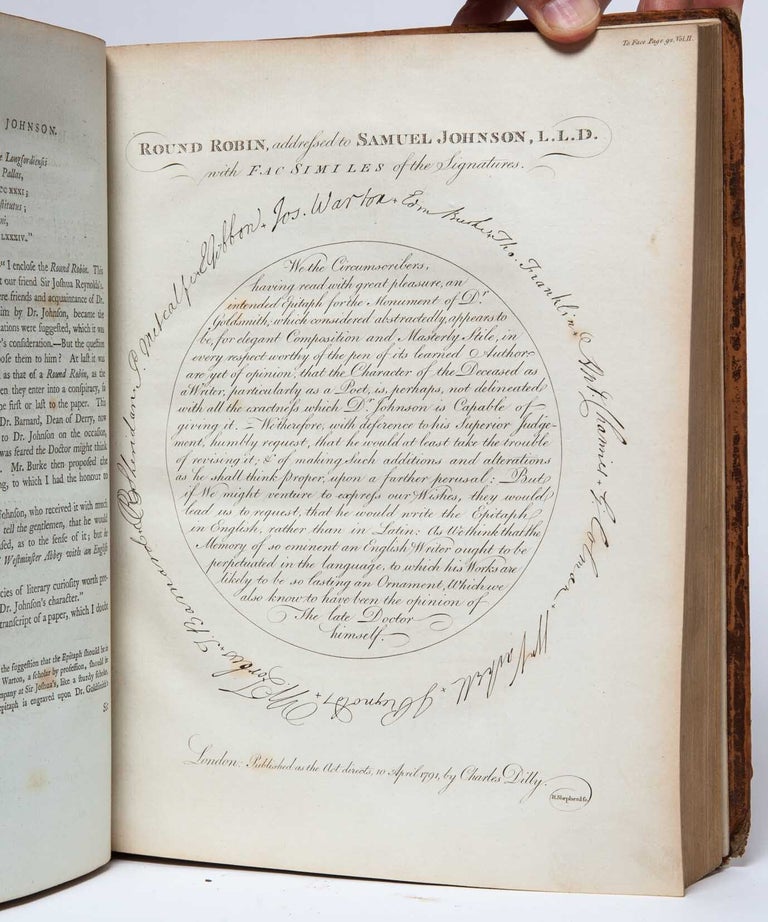 JOHNSON.
Longfordiensis
Pallas,
CCXXXI;
institutus;
LXXXIV."
"I enclose the Round Robin. This
our friend Sir Joshua Reynolds's.
friends and acquaintance of Dr.
him by Dr. Johnson, became the
were suggested, which it was
consideration.—But the question
them to him? At last it was
as that of a Round Robin, as the
they enter into a conspiracy, so
first or last to the paper. This
Dr. Barnard, Dean of Derry, now
to Dr. Johnson on the occasion,
was feared the Doctor might think
Mr. Burke then proposed the
to which I had the honour to
Johnson, who received it with much
tell the gentlemen, that he would
as to the sense of it; but
Westminster Abbey with an English
of literary curiosity worth
Dr. Johnson's character."
transcript of a paper, which I doubt
the suggestion that the Epitaph should be in
Warton, a scholar by profession, should be
at Sir Joshua's, like a sturdy scholar,
is engraved upon Dr. Goldsmith's
Sir
To Face Page 92, Vol. II.
ROUND ROBIN, addressed to SAMUEL JOHNSON, L.L.D.
with FAC SIMILES of the Signatures.
Gibbon + Jos. Warton + Edm Burke + Tho. Franklin + Ant. Chamier + G Colman + Wm Vashell + J Reynolds + W. Forbes + T. Barnard + R B Sheridan + P. Metcalfe +
We the Circumscribers,
having read with great pleasure, an
intended Epitaph for the Monument of Dr.
Goldsmith, which considered abstractedly, appears to
be, for elegant Composition and Masterly Stile, in
every respect worthy of the pen of its learned Author;
are yet of opinion, that the Character of the Deceased as
a Writer, particularly as a Poet, is, perhaps, not delineated
with all the exactness which Dr. Johnson is Capable of
giving it. — We therefore, with deference to his Superior Judge-
ment, humbly request, that he would at least take the trouble
of revising it; & of making Such additions and alterations
as he shall think proper, upon a farther perusal: But
if We might venture to express our Wishes, they would
lead us to request, that he would write the Epitaph
in English, rather than in Latin: As We think that the
Memory of so eminent an English Writer ought to be
perpetuated in the language, to which his Works are
likely to be so lasting an Ornament, Which we
also know to have been the opinion of
The late Doctor
himself.
London: Published as the Act directs, 10 April 1791, by Charles Dilly.
H. Shepherd sc.